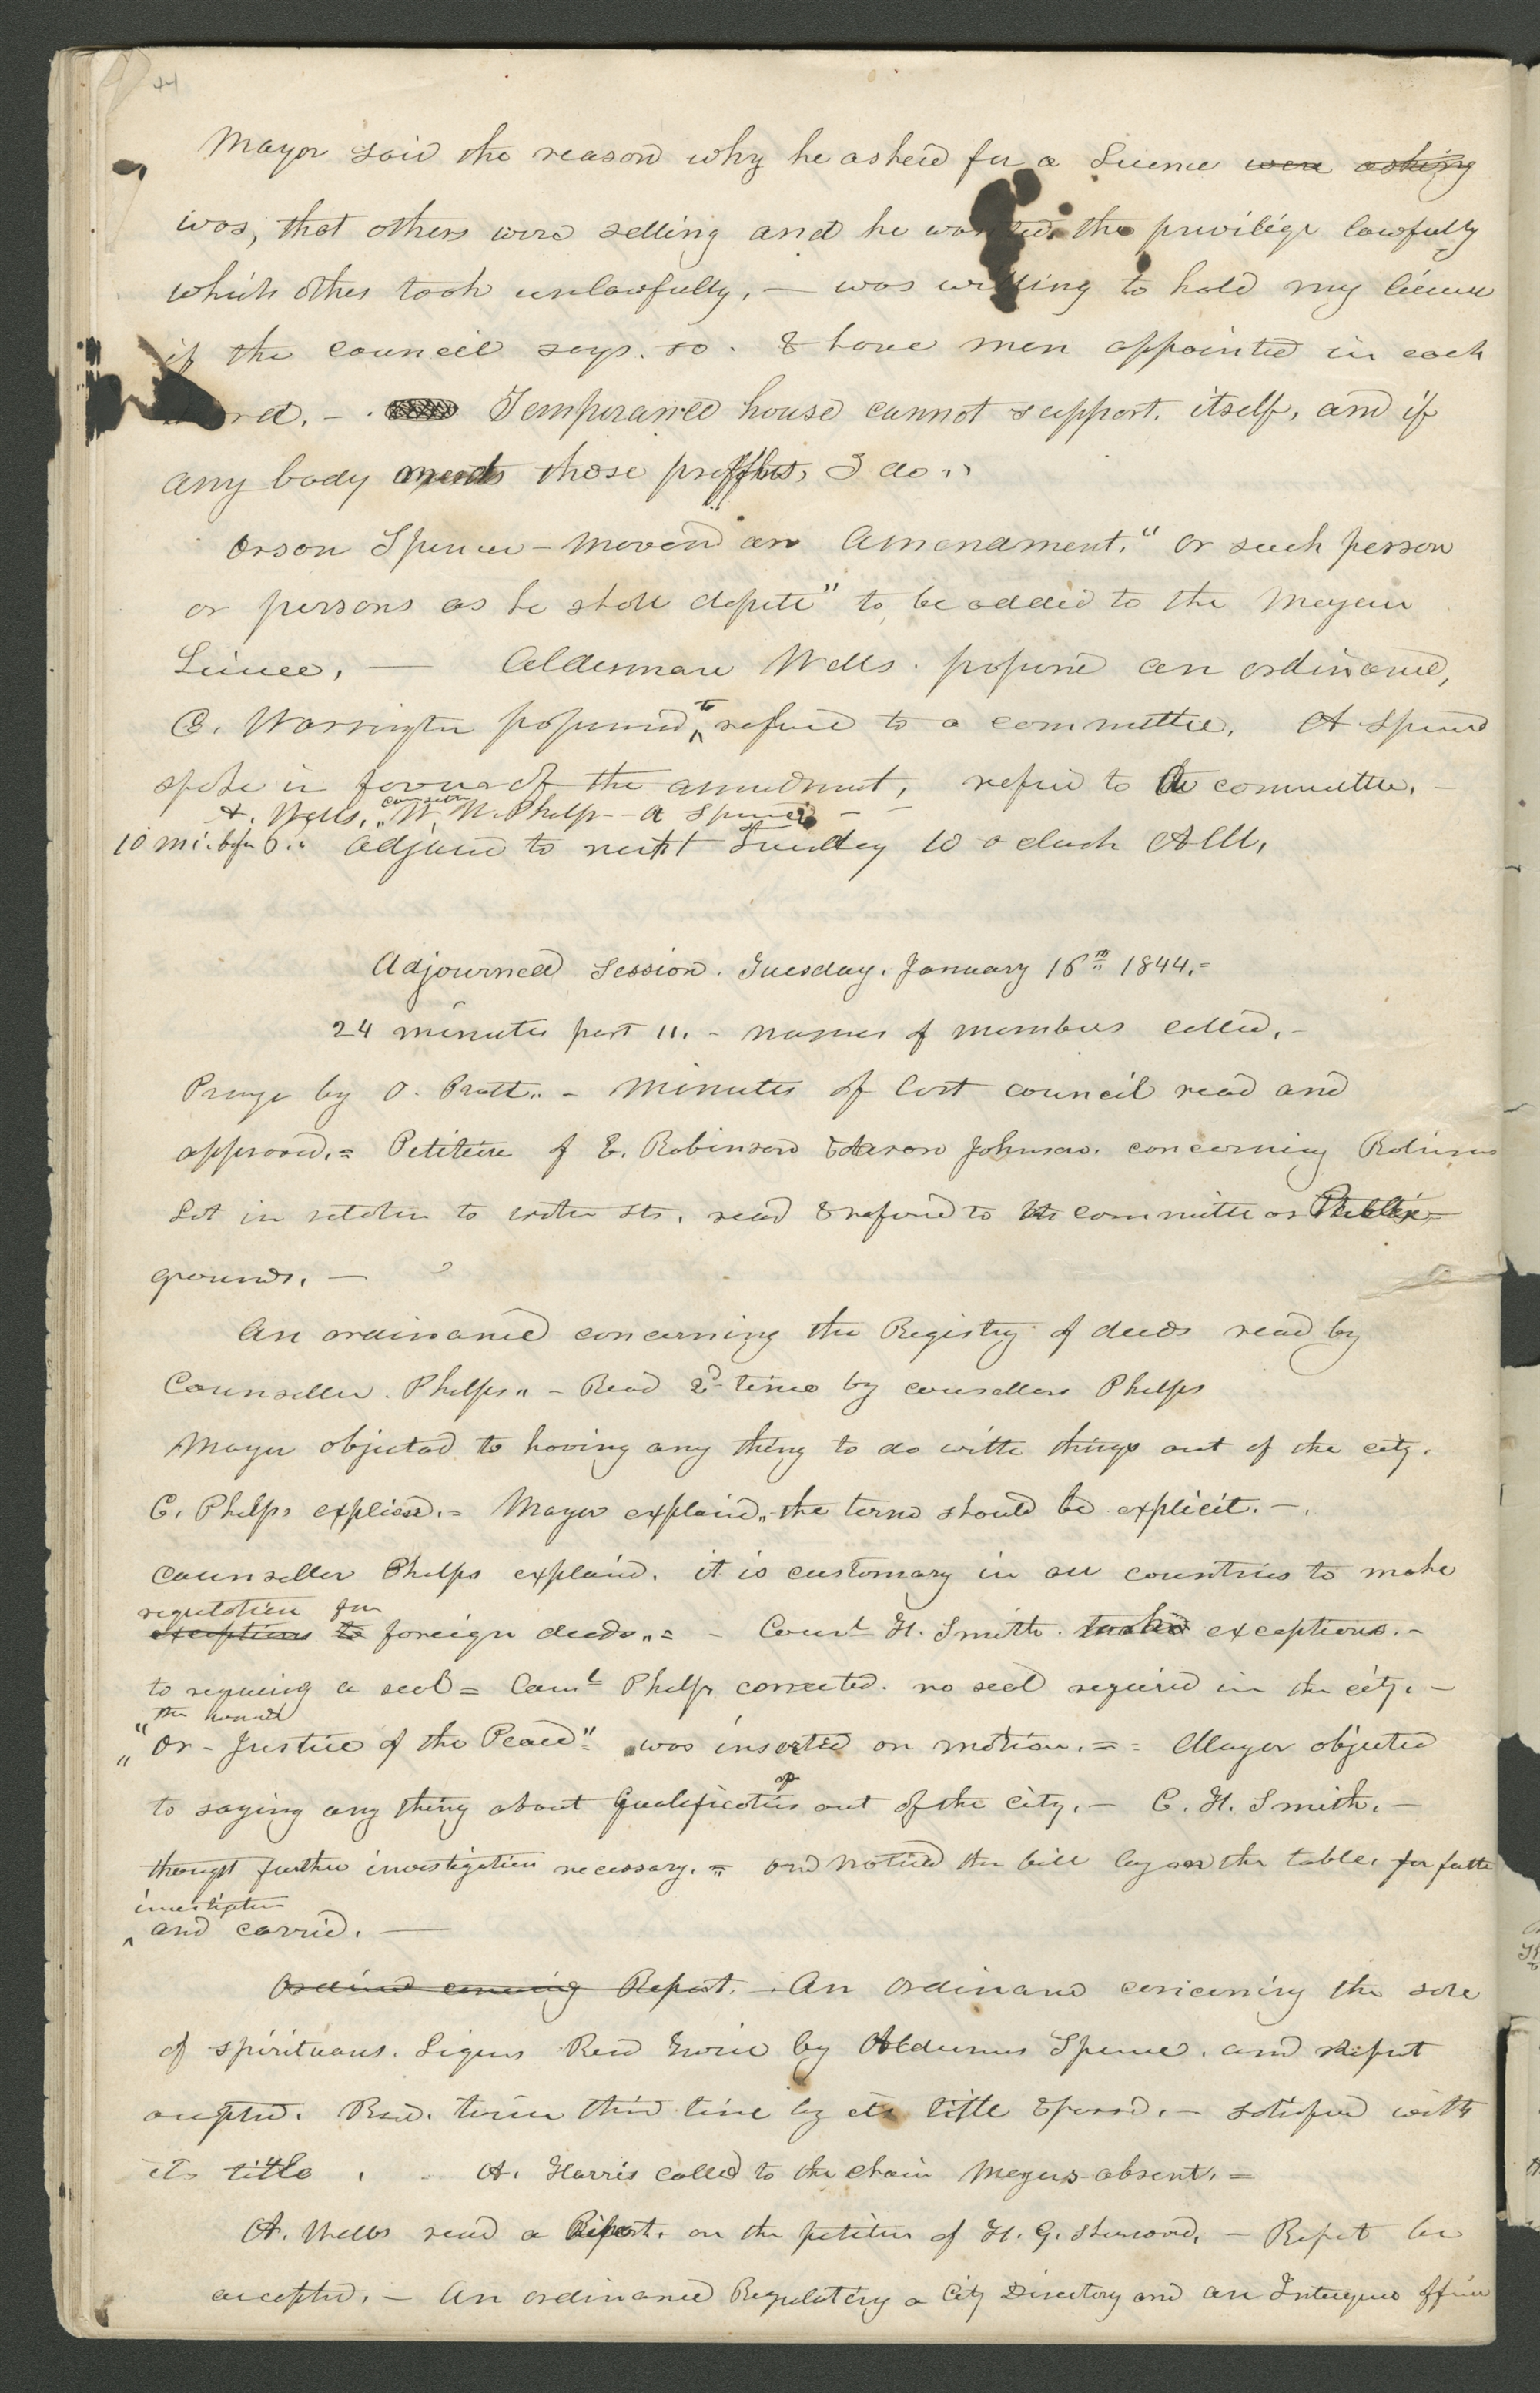 44
Mayor said the reason why he asked for a Licence were asking
was, that others were selling and he wanted the privilige lawfully
which othes took unlawfully, — was willing to hold my licence
if the council says. so. & have men appointed in each
ward. - . Temperance house cannot support. itself, and if
any body needs those proffits, I do.,
Orson Spencer - moved an Amendment. "or such person
or persons as he shall depute" to be added to the Mayors
Licnce, — Alderman Wells. propsed an ordinance,
C. Warrington proposed, to refered to a committee, A Spencer
spoke in favor of the amendment, referd to a committee. -
A. Wells, W. W. Phelps - A Spencer -
10 mi. bfr 6.. Adjound to next Tuesday 10 o clock A M,
Adjourned Session. Tuesday. January 16th 1844.=
24 minutes past 11. - names of members called. -
Praye by O. Pratt.. - Minutes of last council read and
approved. = Petition of E. Robinson & Aaron Johnson. concerning Robinsons
Lot in relation to water sts. read & refered to the committe on Public
grounds. —
An ordinance concerning the Registry of deeds read by
Counseller. Phelps.. - Read 2d time by counsellors Phelps
Mayor objected to having any thing to do with things out of the city.
C. Phelps explied. = Mayor explaind.. the terms should be explicit. -.
Counseller Phelps explaind. it is customary in all countries to make
regulation for
exceptions to foreign deeds.. = - Counl H. Smith. exceptions. -
to requiring a seal = Counl Phelps corrected. no seal required in the city. -
the words
"or - Justice of the Peace" was inserted on motion. = = Mayor objected
to saying any thing about Qualifications of out of the city. - C. H. Smith. -
thought further investigation necessary. = and motied the bill lay on the table. for futhr
investigation
^ and carrid. —
Ordind concerning Report. - An Ordinance concerning the sale
of spirituous. Liqurs Read twice by Alderman Spencer. and Report
accptd. Read. third time by its title & passd. - satisfied with
its title. A. Harris called to the chair Mayors absent. =
A. Wells read a Report. on the petition of H. G. Sherwood. - Report be
acceptd. - An ordinance Regulating a City Directory and an Intelgence Office